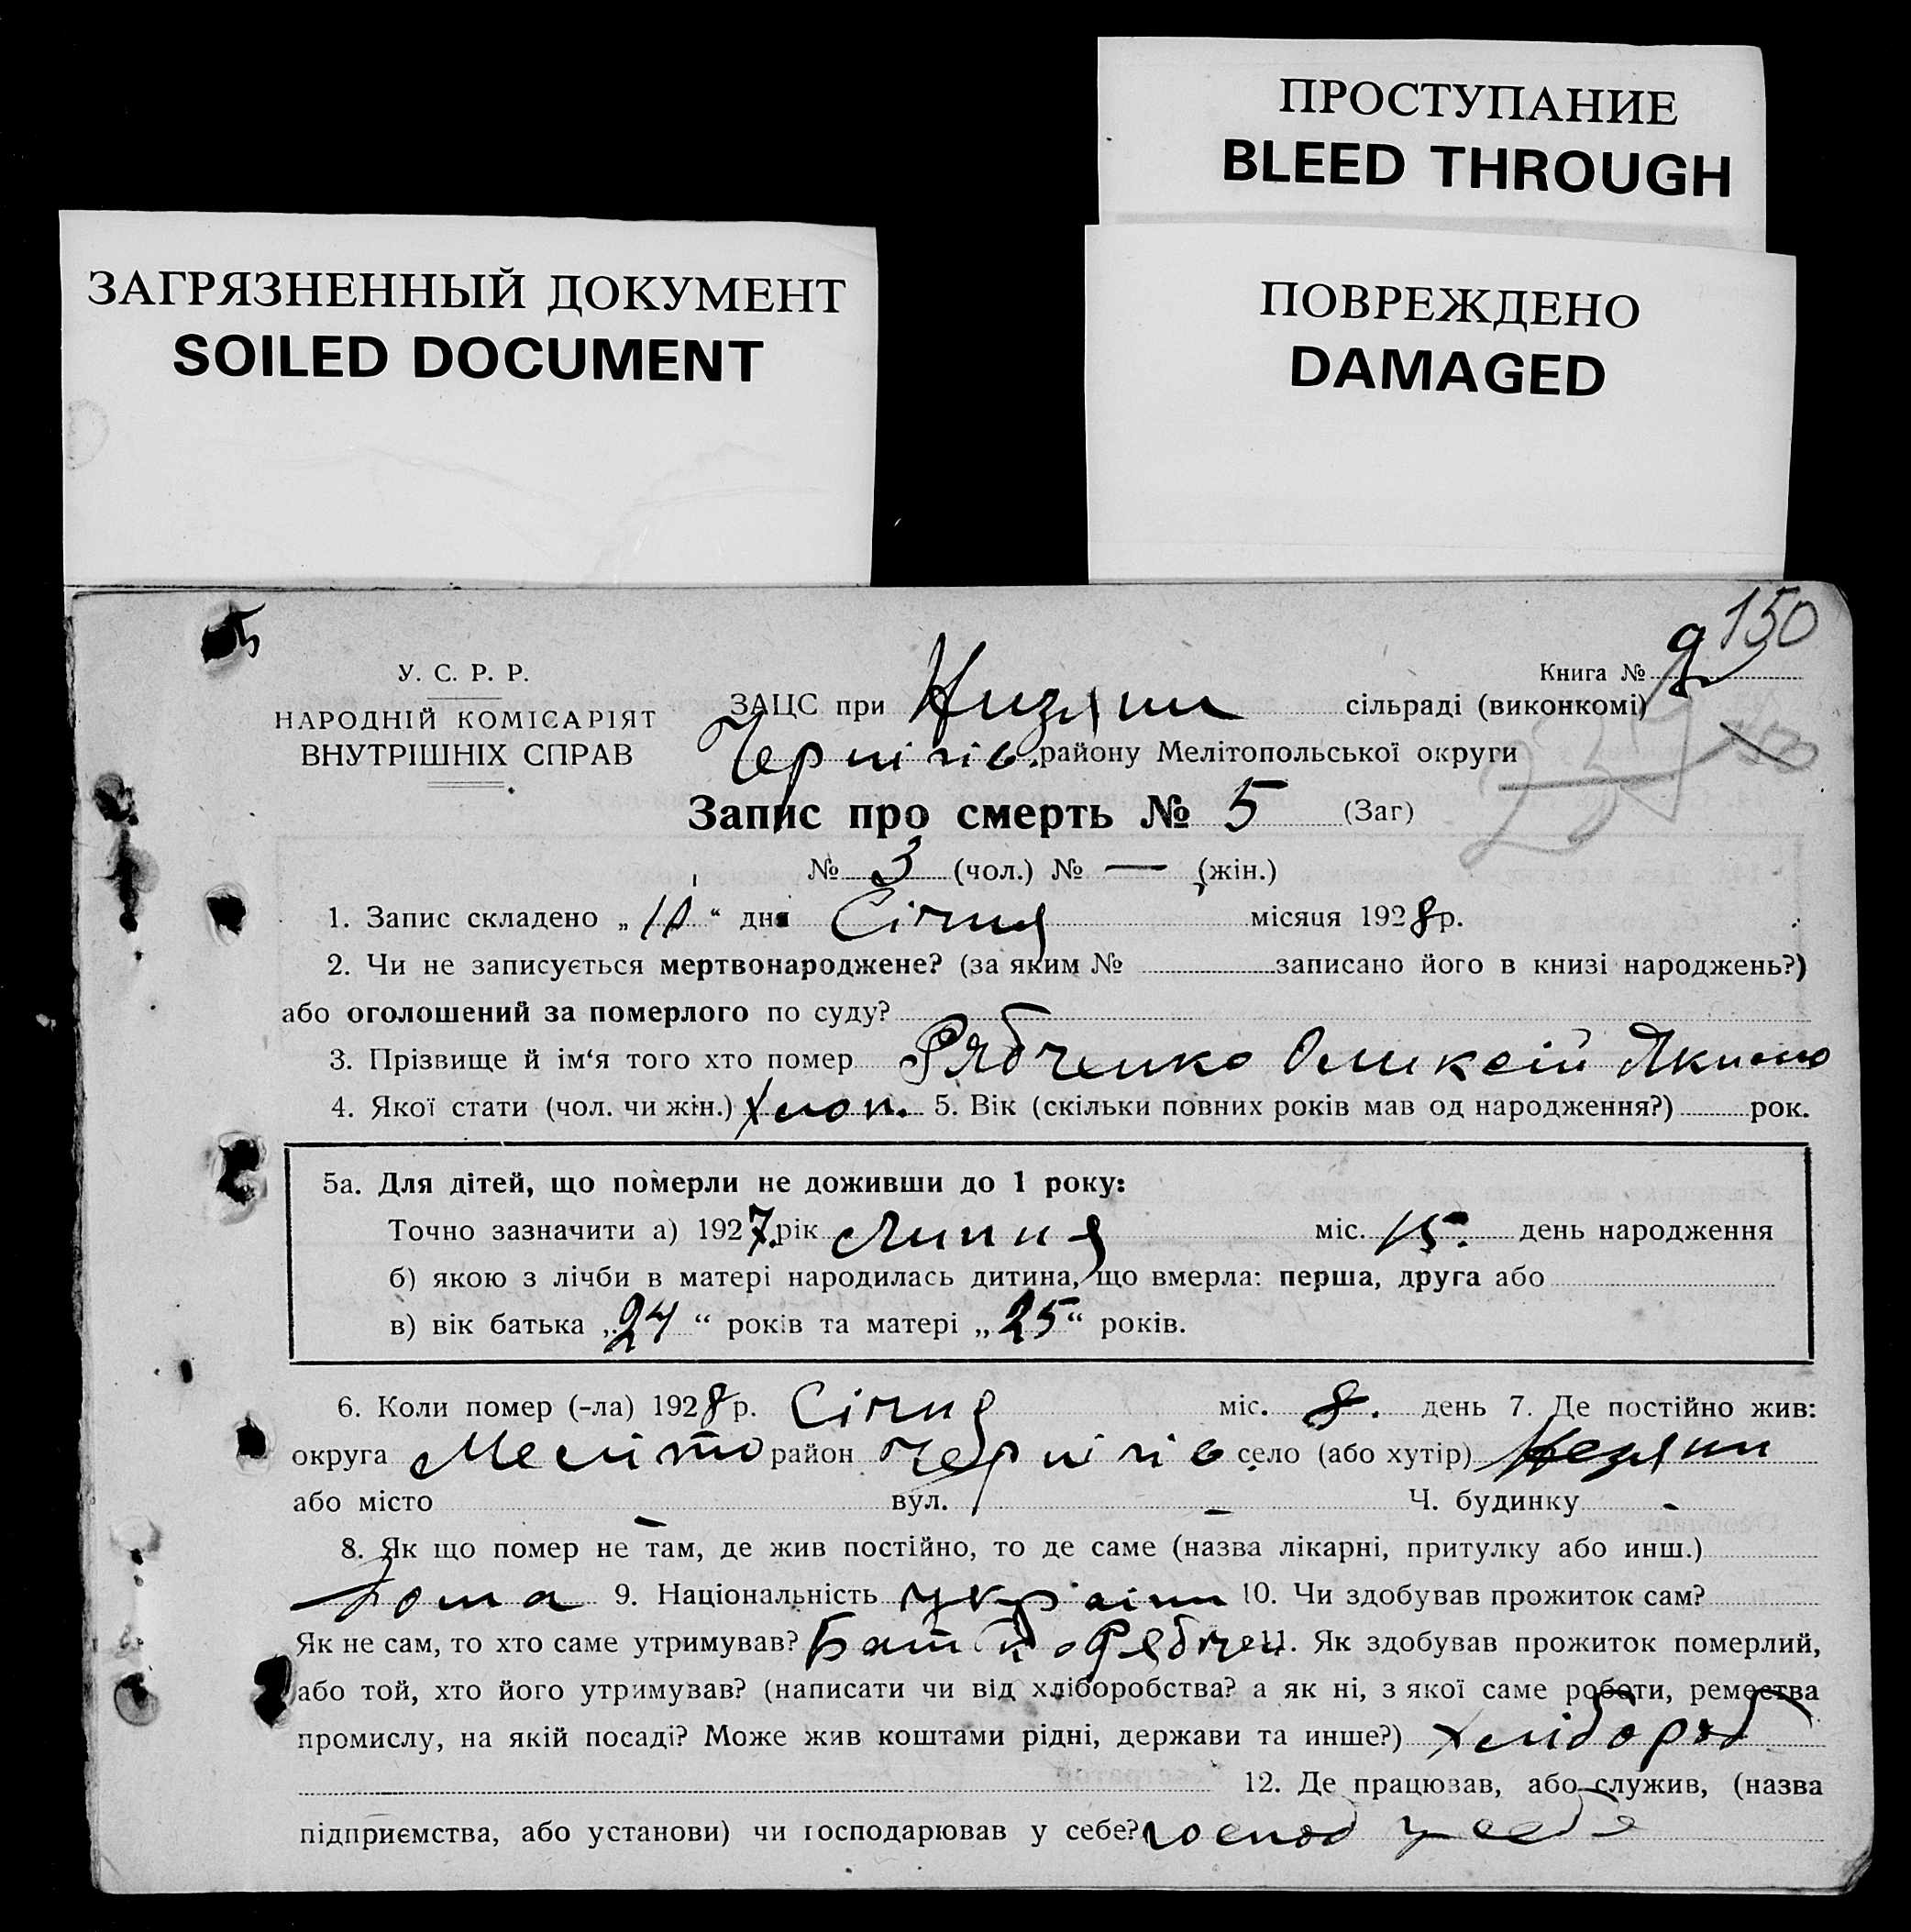 ПРОСТУПАНИЕ
BLEED THROUGH
ЗАГРЯЗНЕННЫЙ ДОКУМЕНТ
SOILED DOCUMENT
ПОВРЕЖДЕНО
DAMAGED
150
У. С. Р. Р.
НАРОДНІЙ КОМІСАРІЯТ
ВНУТРІШНІХ СПРАВ
Книга №
ЗАЦС при сільраді (виконкомі)
Чернігів. району Мелітопольської округи
Запис про смерть № 5 (Заг)
№ 3 (чол.) № — (жін.)
1. Запис складено „ “ дня Січня місяця 1928 р.
2. Чи не записується мертвонароджене? (за яким № записано його в книзі народжень?)
або оголошений за померлого по суду?
3. Прізвище й ім‘я того хто помер Рябченко Олексій
4. Якої стати (чол. чи жін.) хлоп. 5. Вік (скільки повних років мав од народження?) рок.
5а. Для дітей, що померли не доживши до 1 року:
Точно зазначити а) 1927 рік Липня міс. 15. день народження
б) якою з лічби в матері народилась дитина, що вмерла: перша, друга або
в) вік батька „24“ років та матері „25“ років.
6. Коли помер (-ла) 1928 р. Січня міс. 8. день 7. Де постійно жив:
округа Меліто район Чернігів село (або хутір)
або місто - вул. - Ч. будинку -
8. Як що помер не там, де жив постійно, то де саме (назва лікарні, притулку або инш.)
дома 9. Національність україн 10. Чи здобував прожиток сам?
Як не сам, то хто саме утримував? Батько Рябчен 11. Як здобував прожиток померлий,
або той, хто його утримував? (написати чи від хліборобства? а як ні, з якої саме роботи, ремества
промислу, на якій посаді? Може жив коштами рідні, держави та инше?) хлібороб
12. Де працював, або служив, (назва
підприємства, або установи) чи господарював у себе? господ у себе